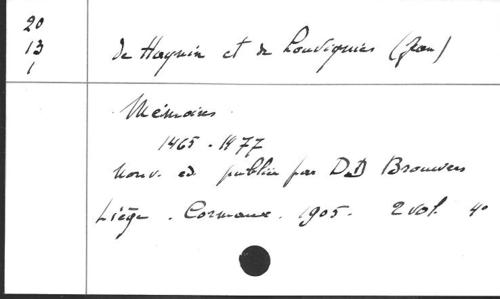 20
13
1
de Haynin et de Louvignies (Jean)
Mémoires
1465 - 1477
nouv. ed publiée par DD Brouwers
Liége . Cormaux . 1905 . 2 vol. 4°